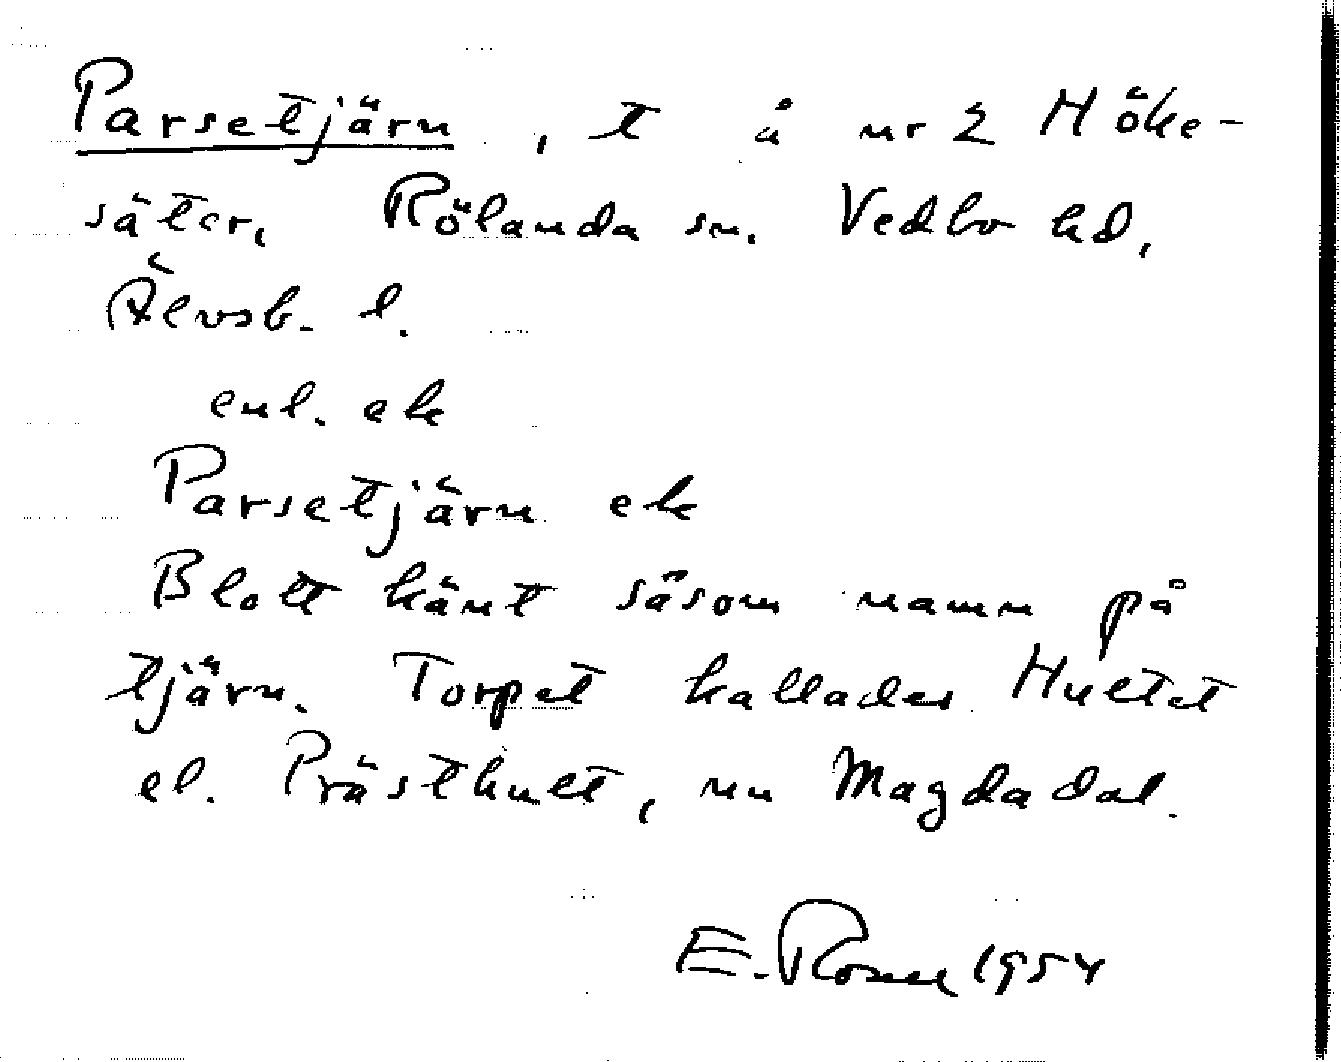 Parsetjärn, t å nr 2 Höke-
säter, Rölanda sn. Vedbo hd,
Älvsb. l.
enl. ek
Parsetjärn ek
Blott känt såsom namn på
tjärn. Torpet kallades Hultet
el. Prästhult, nu Magdadal.
E. Rosell 1954